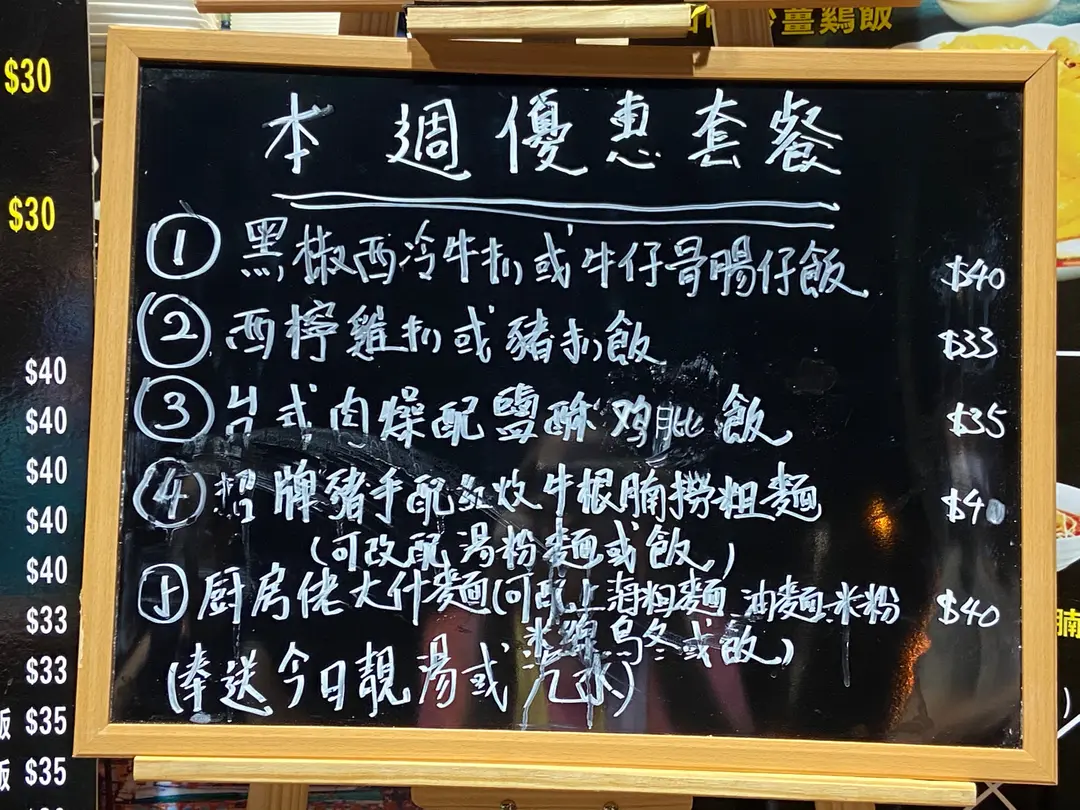 薑鷄飯
$30
$30
$40
$40
$40
$40
$40
$33
$33
飯 $35
飯 $35
本週優惠套餐
① 黑椒西冷牛扒或牛仔骨腸仔飯 $40
② 西檸雞扒或豬扒飯 $33
③ 台式肉燥配鹽酥鸡肶飯 $35
④ 招牌豬手配紅炆牛根腩撈粗麵 $40
(可改配湯粉麵或飯)
⑤ 厨房佬大什麵(可改上海粗麵 油麵.米粉 $40
米線烏冬或飯)
(奉送今日靚湯或汽水)
腩
)